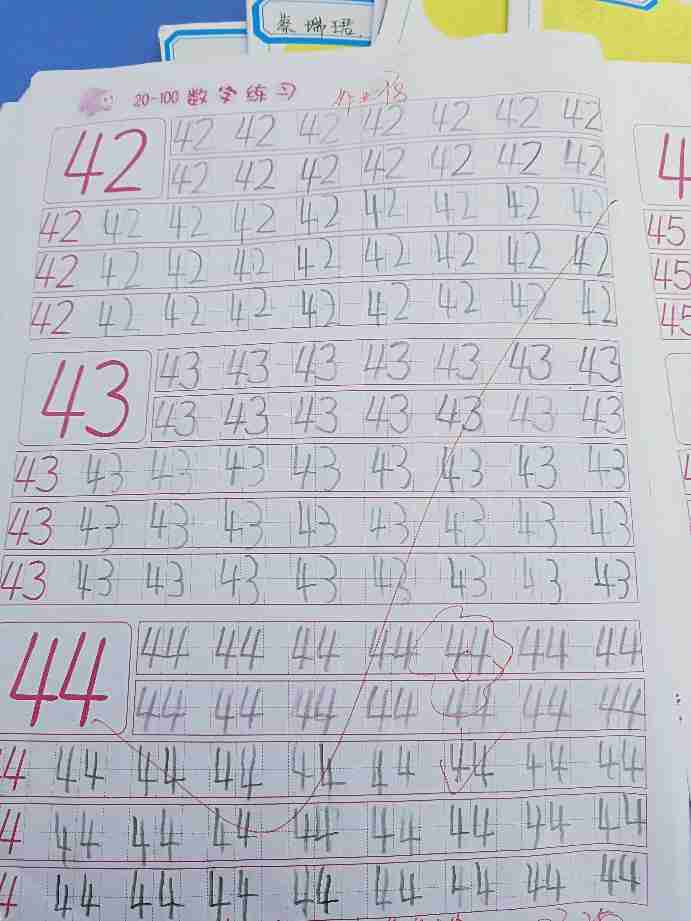 蔡瑞珺
20-100 数字练习
42 42 42 42 42 42 42 42
42 42 42 42 42 42 42
42 42 42 42 42 42 42 42 42
42 42 42 42 42 42 42 42 42
42 42 42 42 42 42 42 42 42
43 43 43 43 43 43 43 43
43 43 43 43 43 43 43
43 43 43 43 43 43 43 43 43
43 43 43 43 43 43 43 43 43
43 43 43 43 43 43 43 43 43
44 44 44 44 44 44 44 44
44 44 44 44 44 44 44
4 44 44 44 44 44 44 44 44
4 44 44 44 44 44 44 44 44
4 44 44 44 44 44 44 44 44
4
45
45
45